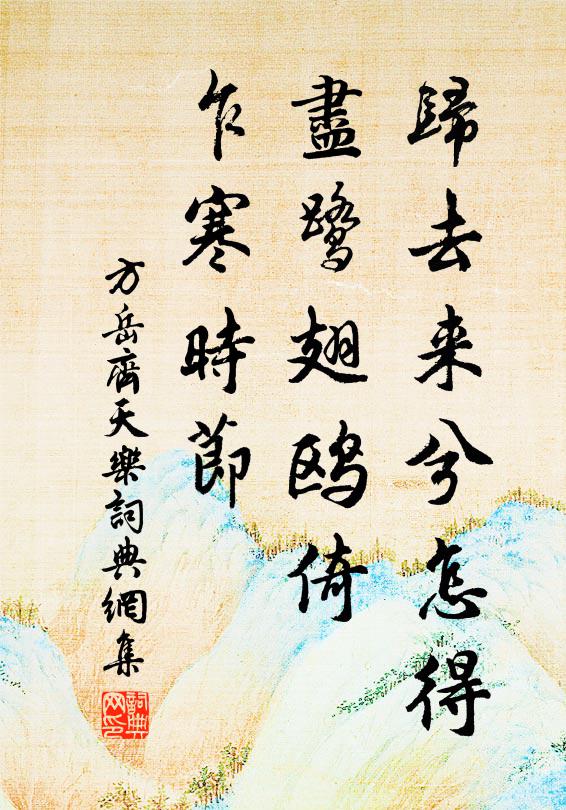 歸去来兮怎得
盡鷺翅鷗倚
乍寒時節
方岳齊天樂詞典網集
詞典
网印